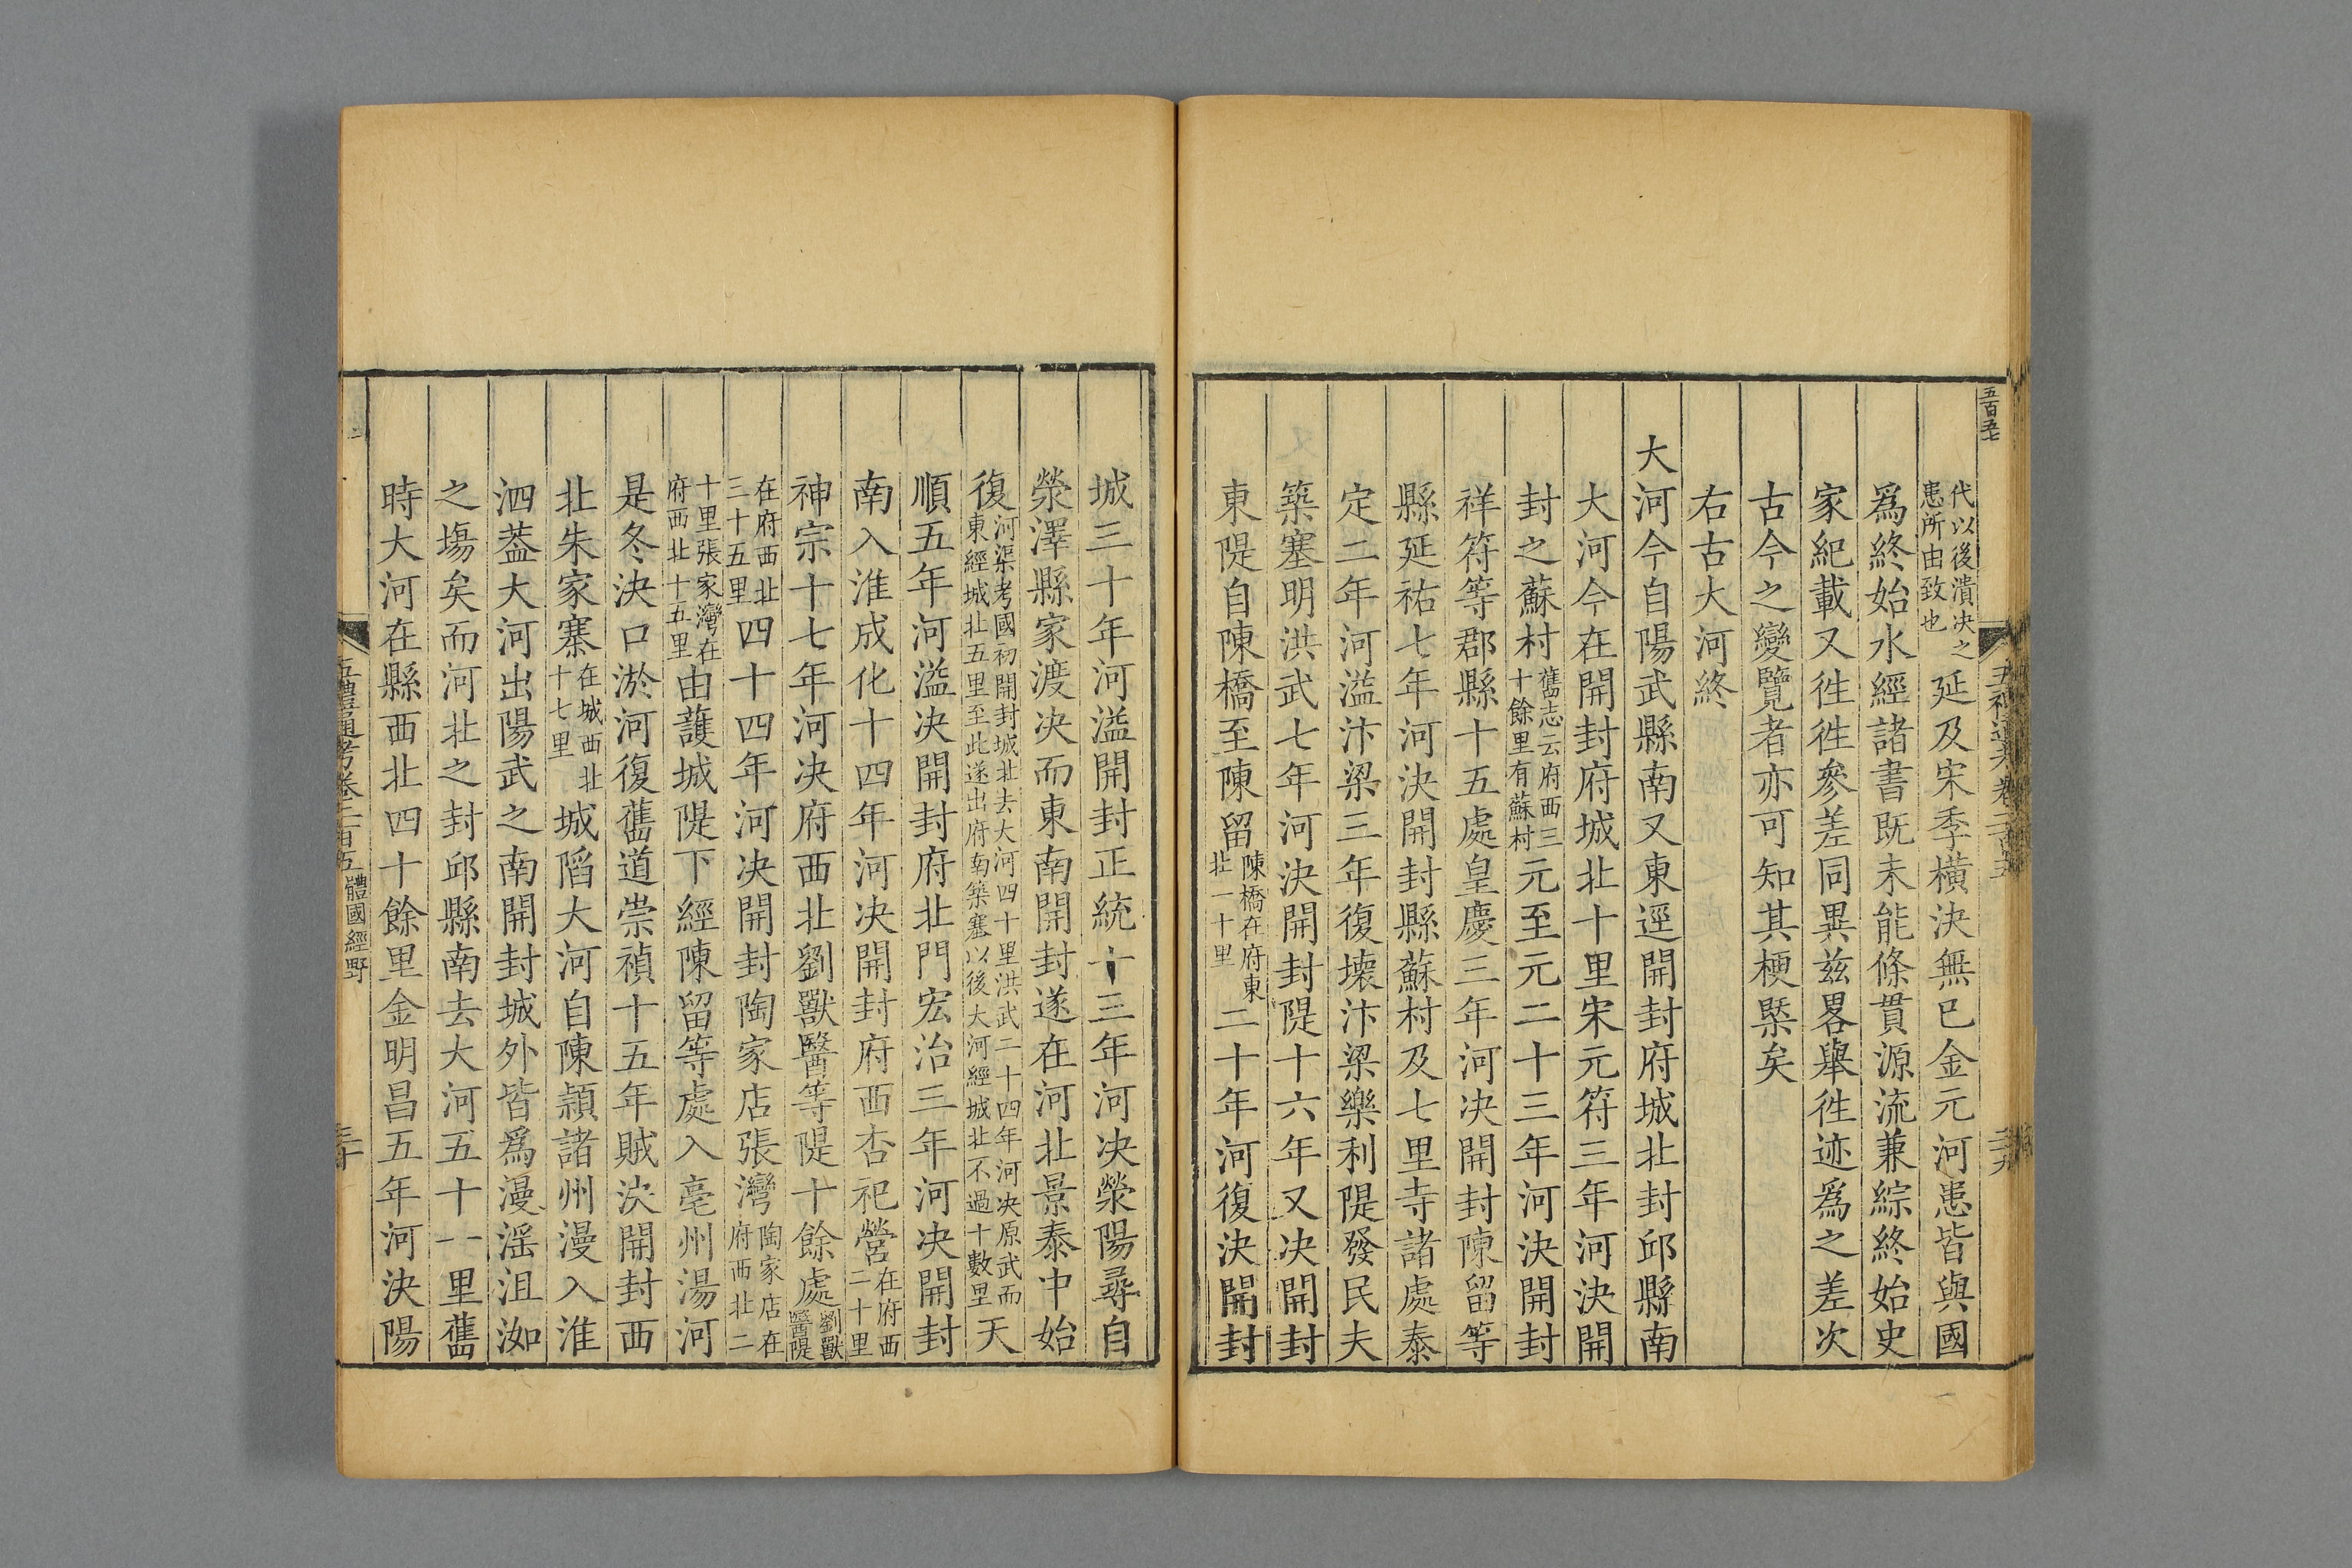 五百五七
代以後潰決之患所由致也延及宋季橫決無已金元河患皆與國
爲終始水經諸書既未能條貫源流兼綜終始史
家紀載又徃徃參差同異兹畧舉徃迹爲之差次
古今之變覽者亦可知其梗槩矣
右古大河終
大河今自陽武縣南又東逕開封府城北封邱縣南
大河今在開封府城北十里宋元符三年河決開
封之蘇村舊志云府西三十餘里有蘇村元至元二十三年河決開封
祥符等郡縣十五處皇慶三年河决開封陳留等
縣延祐七年河決開封縣蘇村及七里寺諸處泰
定二年河溢汴梁三年復壞汴梁樂利隄發民夫
築塞明洪武七年河決開封隄十六年又决開封
東隄自陳橋至陳留陳橋在府東北一十里二十年河復決開封
城三十年河溢開封正統十三年河决滎陽尋自
滎澤縣家渡决而東南開封遂在河北景泰中始
復河渠考國初開封城北去大河四十里洪武二十四年河决原武而東經城北五里至此遂出府南築塞以後大河經城北不過十數里天
順五年河溢决開封府北門宏治三年河決開封
南入淮成化十四年河决開封府西杏祀營在府西二十里
神宗十七年河决府西北劉獸醫等隄十餘處劉獸醫隄
在府西北三十五里四十四年河决開封陶家店張灣陶家店在府西北二
十里張家灣在府西北十五里由護城隄下經陳留等處入亳州湯河
是冬決口淤河復舊道崇禎十五年賊决開封西
北朱家寨在城西北十七里城陷大河自陳頴諸州漫入淮
泗葢大河出陽武之南開封城外皆爲漫滛沮洳
之塲矣而河北之封邱縣南去大河五十一里舊
時大河在縣西北四十餘里金明昌五年河決陽
五禮通考卷二百五 體國經野
三十